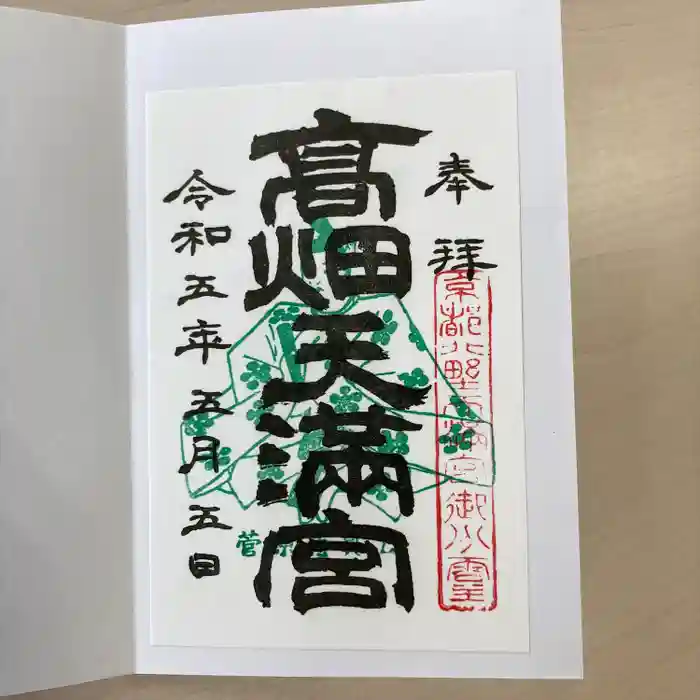 奉拝
京都北野天満宮御分霊
高畑天満宮
令和五年五月五日